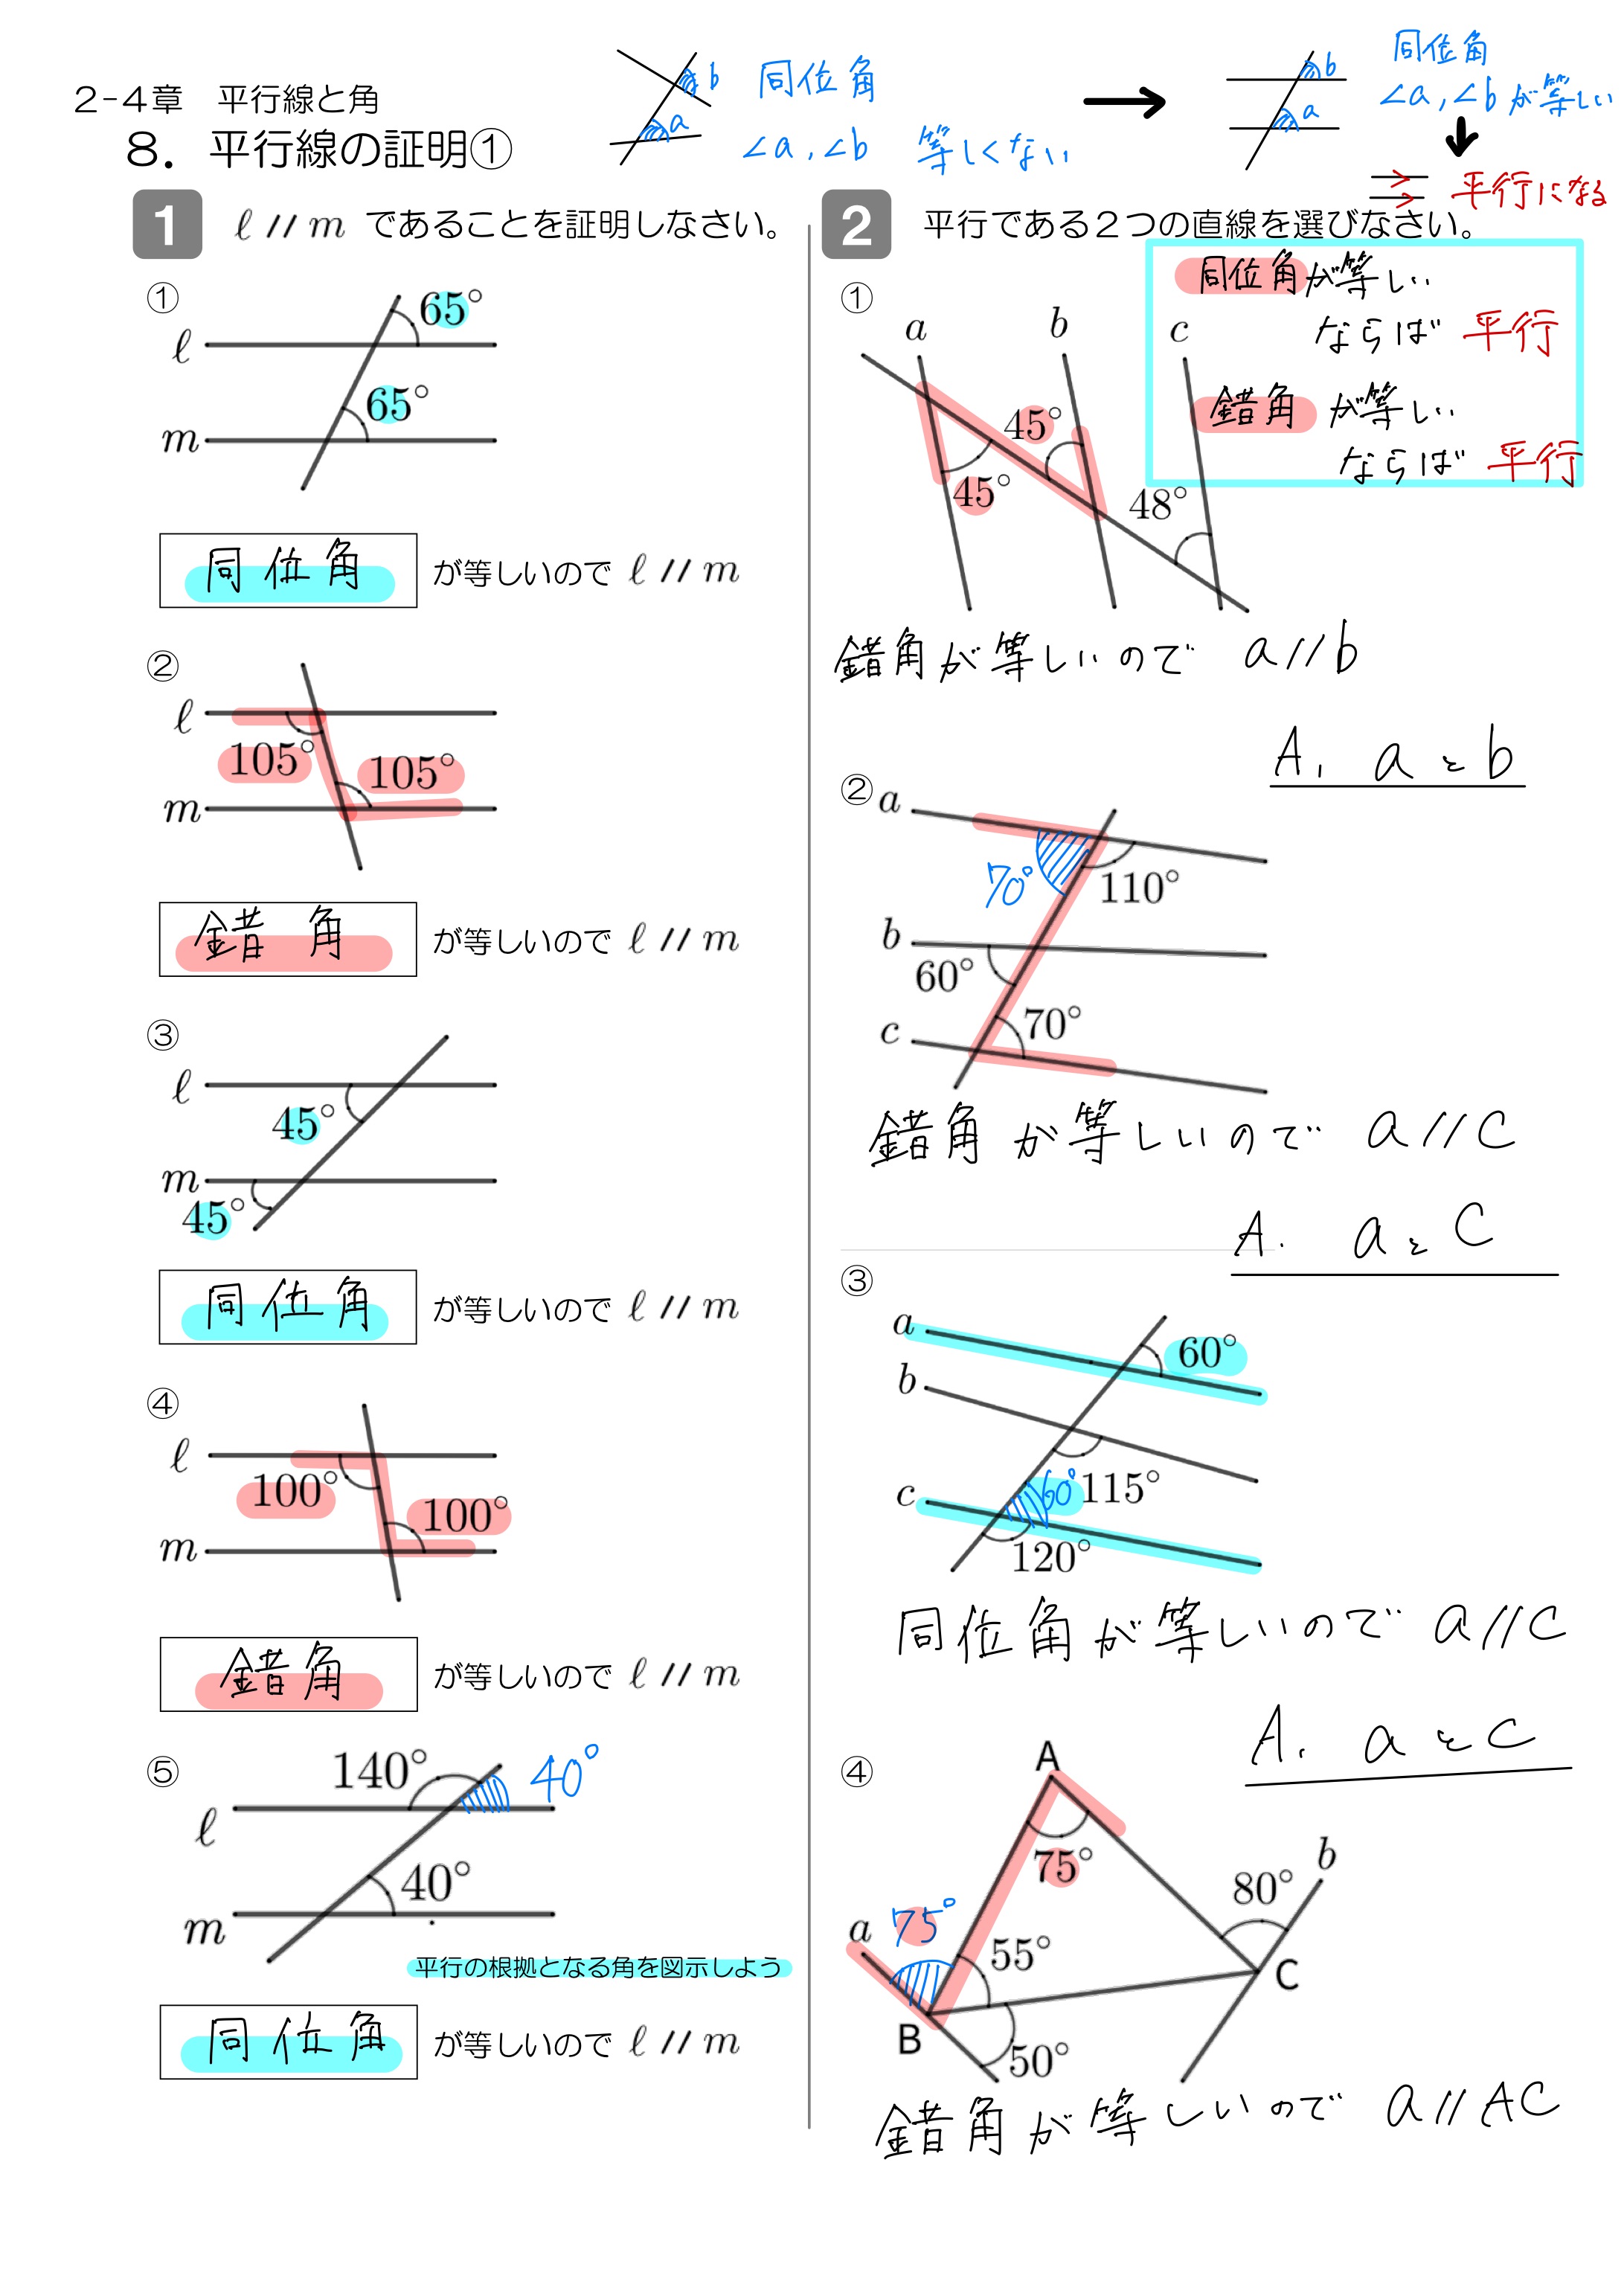 2-4章　平行線と角
8. 平行線の証明①
b 同位角
a
∠a,∠b 等しくない
→
b
a
同位角
∠a,∠bが等しい
平行になる
1 ℓ // m であることを証明しなさい。
①
65°
ℓ
65°
m
同位角 が等しいので ℓ // m
②
ℓ
105°
105°
m
錯角 が等しいので ℓ // m
③
ℓ
45°
m
45°
同位角 が等しいので ℓ // m
④
ℓ
100°
100°
m
錯角 が等しいので ℓ // m
⑤
140° 40°
ℓ
40°
m
平行の根拠となる角を図示しよう
同位角 が等しいので ℓ // m
2 平行である2つの直線を選びなさい。
同位角が等しい
ならば 平行
錯角が等しい
ならば 平行
①
a b c
45°
45°
48°
錯角が等しいので a//b
A. aとb
②
a
70°
110°
b
60°
70°
c
錯角が等しいので a//c
A. aとc
③
a
60°
b
60° 115°
c
120°
同位角が等しいので a//c
A. aとc
④
A
75°
b
80°
a 75°
55°
C
B
50°
錯角が等しいので a//AC